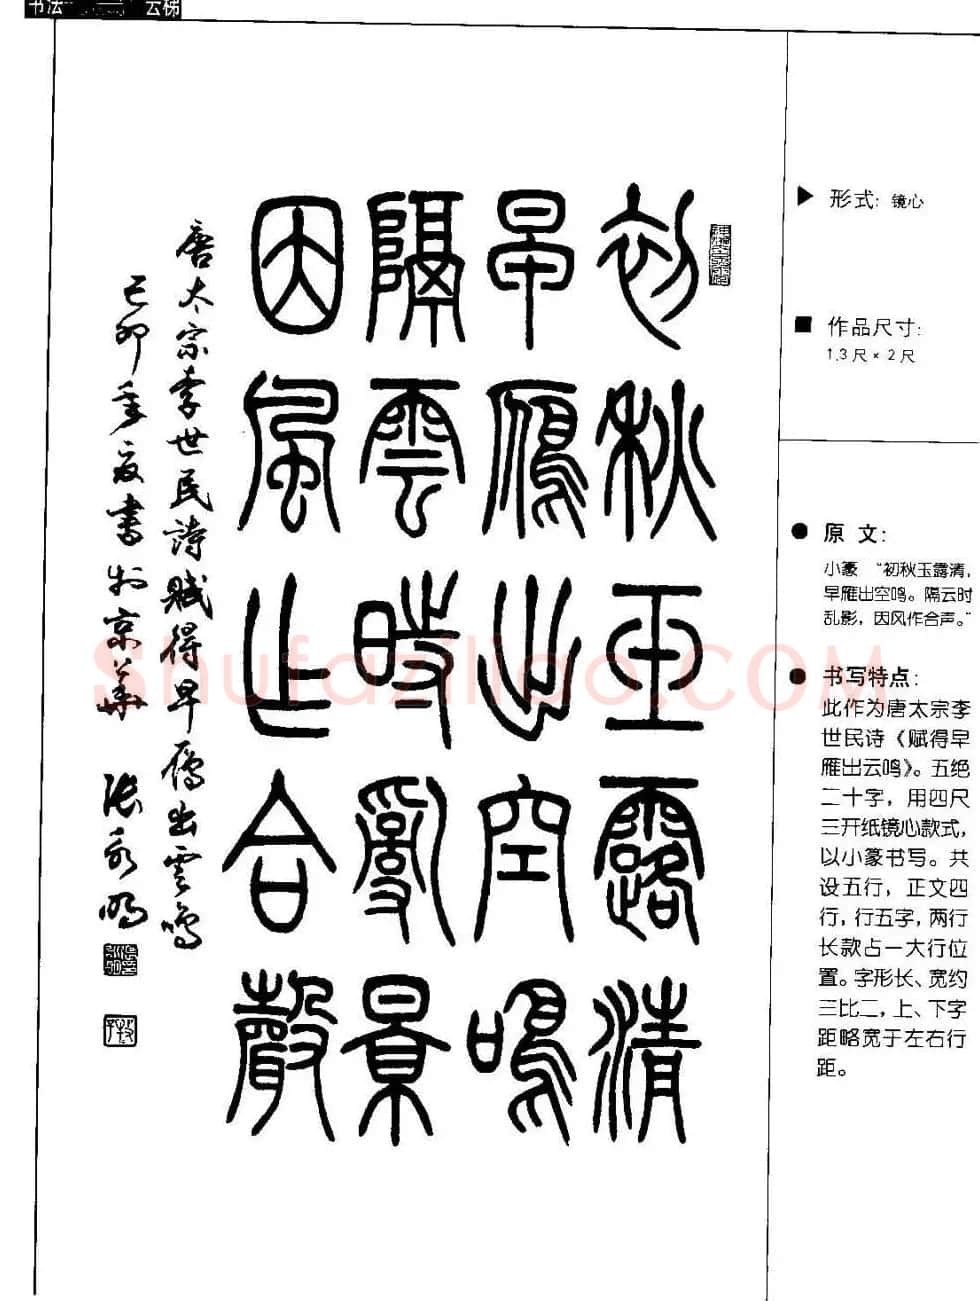 书法
云梯
初秋玉露清
早雁出空鳴
隔雲時亂景
因風乍合聲
唐太宗李世民詩賦得早雁出雲鳴
己卯年夏書於京華 張永明
Shufaziliao.COM
▶ 形式: 镜心
■ 作品尺寸:
1.3尺×2尺
● 原 文:
小篆 “初秋玉露清,
早雁出空鸣。隔云时
乱影，因风作合声。”
● 书写特点:
此作为唐太宗李
世民诗《赋得早
雁出云鸣》。五绝
二十字，用四尺
三开纸镜心款式，
以小篆书写。共
设五行，正文四
行，行五字，两行
长款占一大行位
置。字形长、宽约
三比二，上、下字
距略宽于左右行
距。